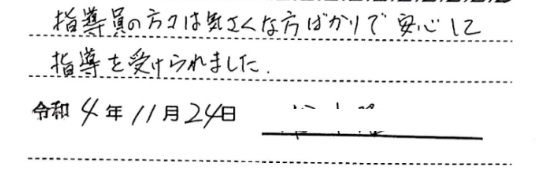 指導員の方々は気さくな方ばかりで安心して
指導を受けられました.
令和4年11月24日